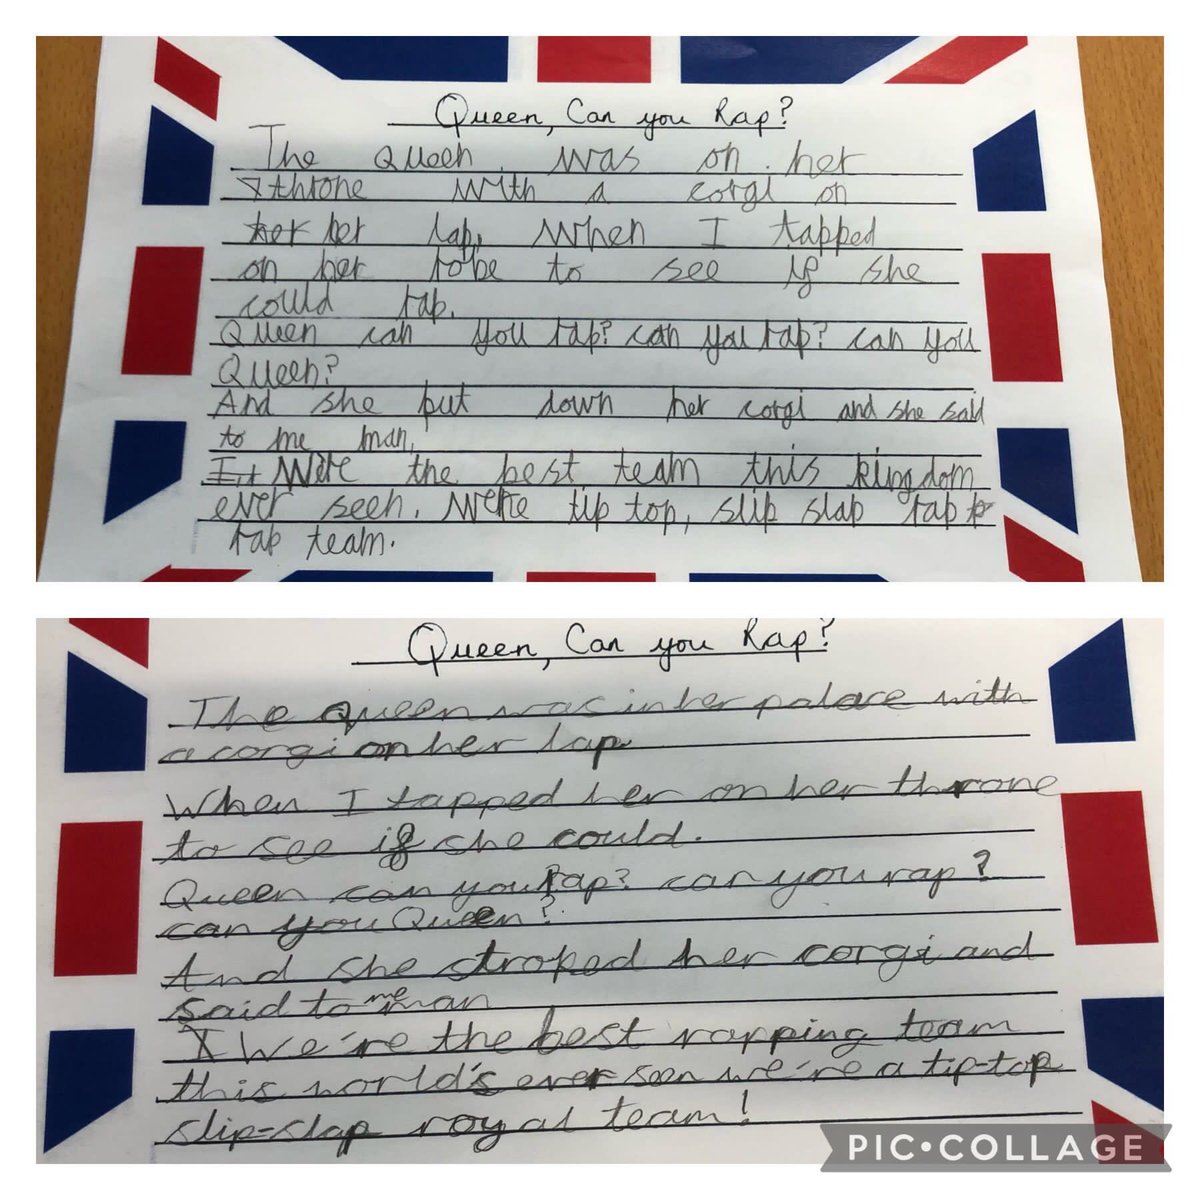 Queen, Can you Rap?
The Queen was on her
throne with a corgi on
her her lap, When I tapped
on her robe to see if she
could rap.
Queen can you rap? can you rap? can you
Queen?
And she put down her corgi and she said
to me man,
We're the best team this kingdom
ever seen. We're tip top, slip slap rap
rap team.
Queen, Can you Rap?
The Queen was in her palace with
a corgi on her lap
When I tapped her on her throne
to see if she could.
Queen can you Rap? can you rap?
can you Queen?
And she stroked her corgi and
said to me man
We're the best rapping team
this world's ever seen we're a tip-top
slip-slap royal team!
PIC•COLLAGE